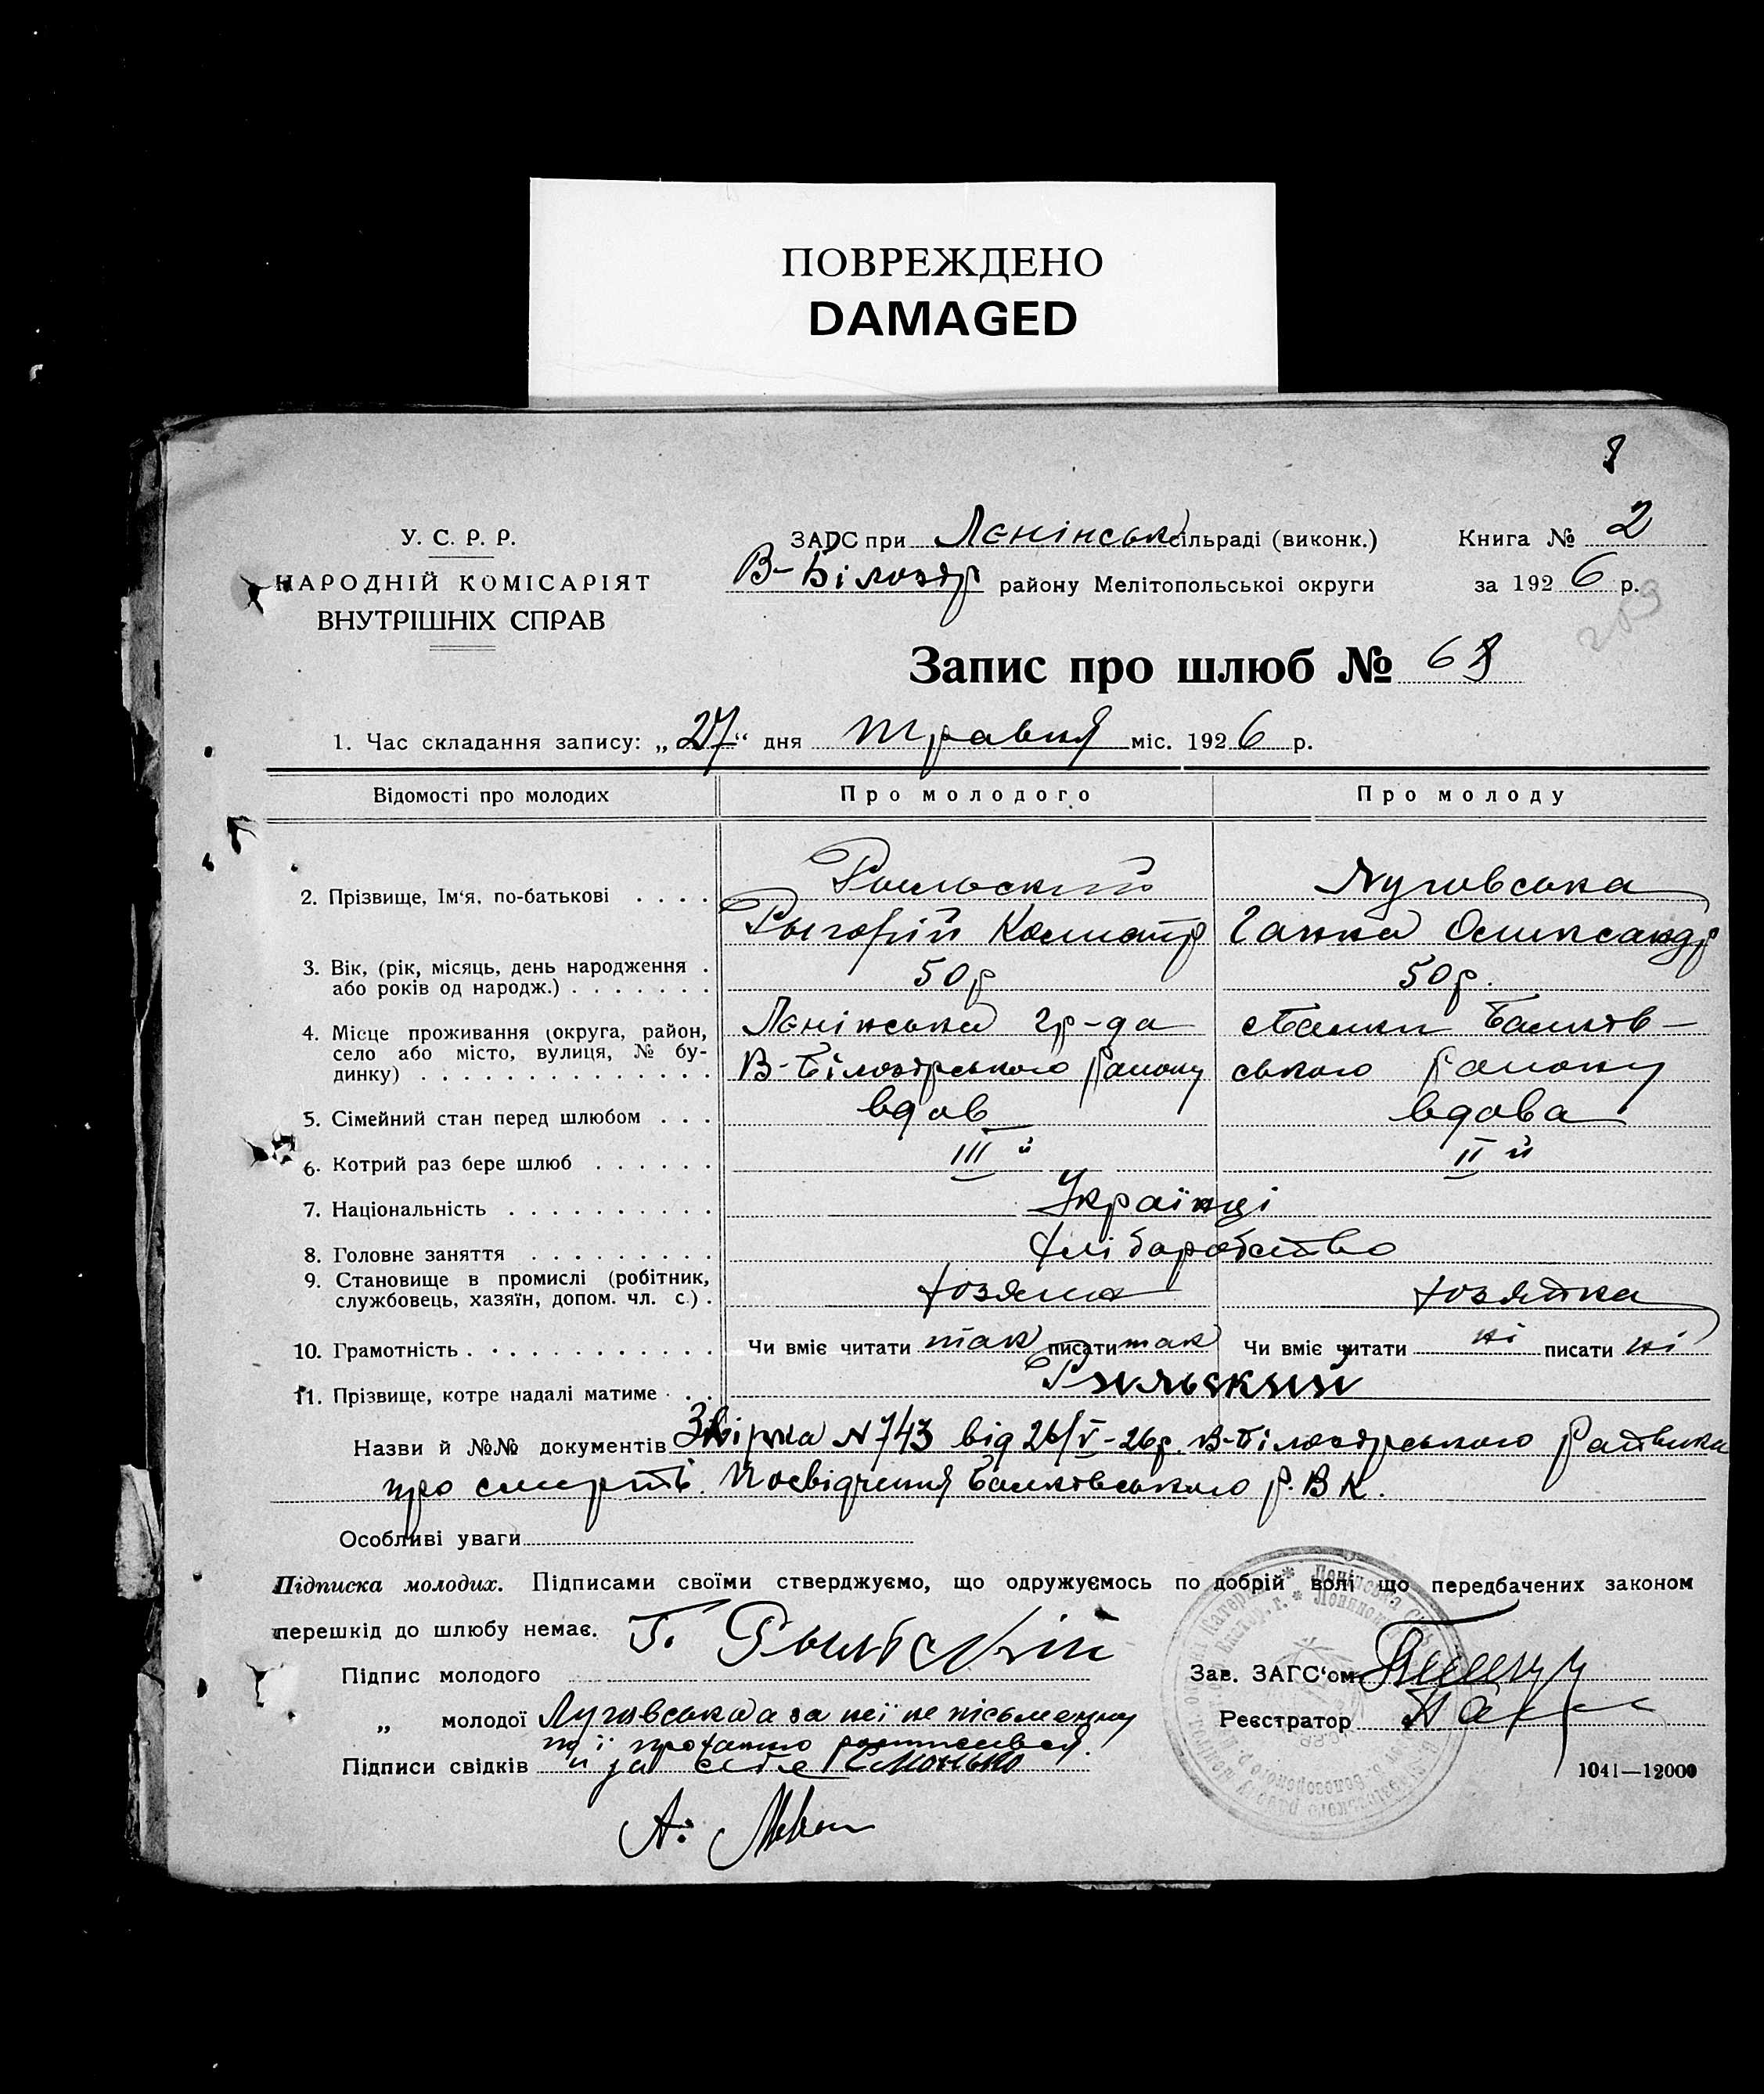 ПОВРЕЖДЕНО
DAMAGED
8
У. С. Р. Р.
НАРОДНІЙ КОМІСАРІЯТ
ВНУТРІШНІХ СПРАВ
ЗАГС при Ленінськ сільраді (виконк.)
В-Білозер району Мелітопольськоі округи
Книга № 2
за 1926 р.
209
Запис про шлюб № 68
1. Час складання запису: „27“ дня травня міс. 1926 р.
Відомості про молодих Про молодого Про молоду
2. Прізвище, Ім‘я, по-батькові . . . . Рыльский Луговська
Рыгорій Ганна Олександр
3. Вік, (рік, місяць, день народження . 50р 50р.
або років од народж.) . . . . . . .
4. Місце проживання (округа, район, Ленінська гр-да
село або місто, вулиця, № бу- В-Білозерського району ського району
динку) . . . . . . . . . . . . . .
5. Сімейний стан перед шлюбом . . . вдов вдова
6. Котрий раз бере шлюб . . . . . . III й II й
7. Національність . . . . . . . . . . Українці
8. Головне заняття . . . . . . . . . Хліборобство
9. Становище в промислі (робітник, хозяин хозяйка
службовець, хазяїн, допом. чл. с.) .
10. Грамотність . . . . . . . . . . . . Чи вміє читати так писати так Чи вміє читати ні писати ні
11. Прізвище, котре надалі матиме . . . Рильский
Назви й №№ документів N 743 від 26/V-26р. В-Білозерського
про смерть. Посвідчення р. В К.
Особливі уваги
Підписка молодих. Підписами своїми стверджуємо, що одружуємось по добрій волі що передбачених законом
перешкід до шлюбу немає.
Підпис молодого Г. Рыльскій
„ молодої Луговська а за неї не пісьменну
по її проханню росписався
Підписи свідків и за себе
А.
Зав. ЗАГС‘ом
Реєстратор
1041—12000